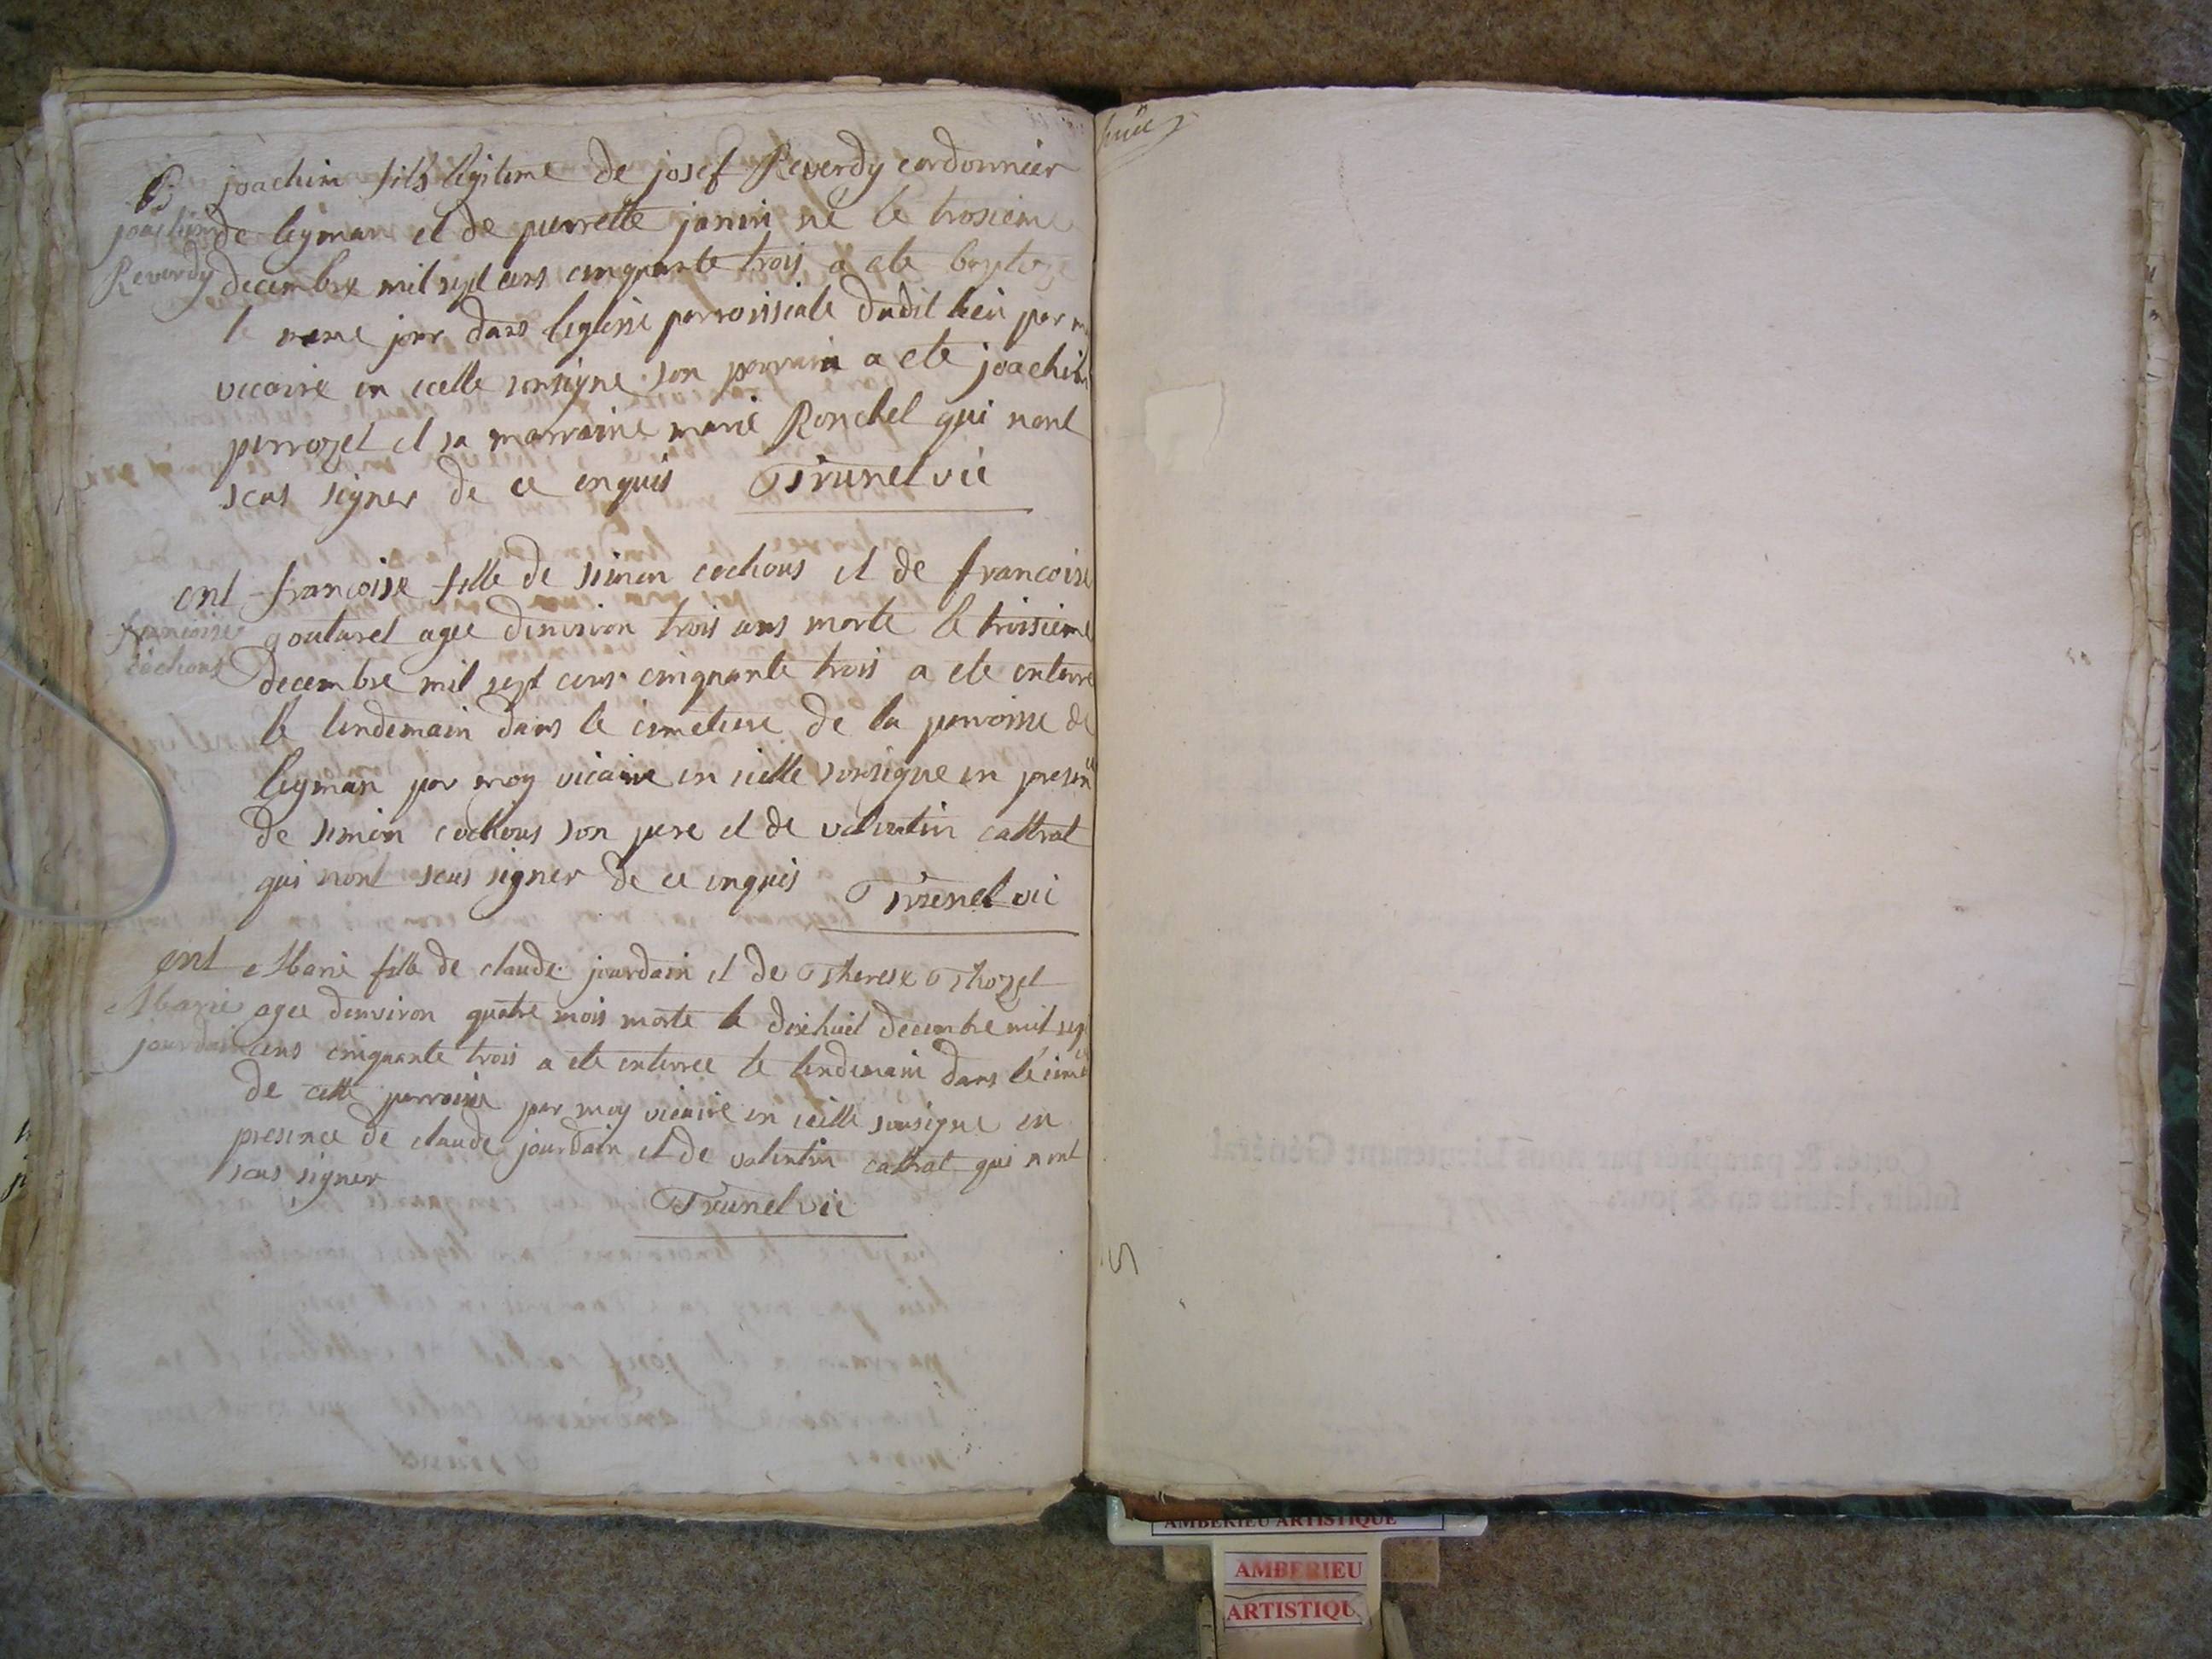 B joachim fils legitime de josef Reverdy cordonnier
joachim de leyman et de pierrette janin né le trosieme
Reverdy decembre mil sept cens cinquante trois a ete baptize
le meme jour dans leglise parroissiale dudit lieu par
vicaire en icelle sousigne son parrain a ete joachim
perrozet et sa marraine marie Ronchel qui nont
sceus signer de ce enquis Trunel vic
ent francoise fille de simon cochous et de francoise
francoise goutaret agee denviron trois ans morte le troisieme
cochous decembre mil sept cens cinquante trois a ete enterre
le lendemain dans le cimetiere de la parroisse de
leyman par moy vicaire en icelle sousigne en presen
de simon cochous son pere et de valentin cattrat
qui nont sceus signer de ce enquis Trunel vic
ent Marie fille de claude jourdain et de Therese Thozet
Marie agee denviron quatre mois morte le dixhuit decembre mil sep
jourdain cens cinquante trois a ete enterree le lendemain dans le cime
de cette parroisse par moy vicaire en icelle sousigne en
presence de claude jourdain et de valentin cattrat qui nont
sceus signer
Trunel vic
AMBERIEU ARTISTIQUE
AMBERIEU
ARTISTIQU